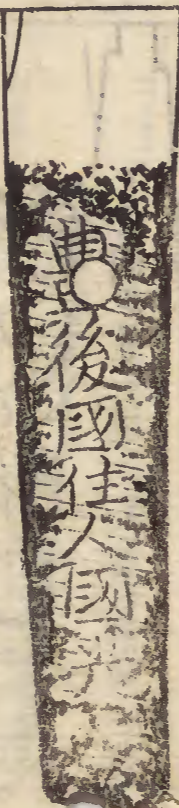 豊後國住人國